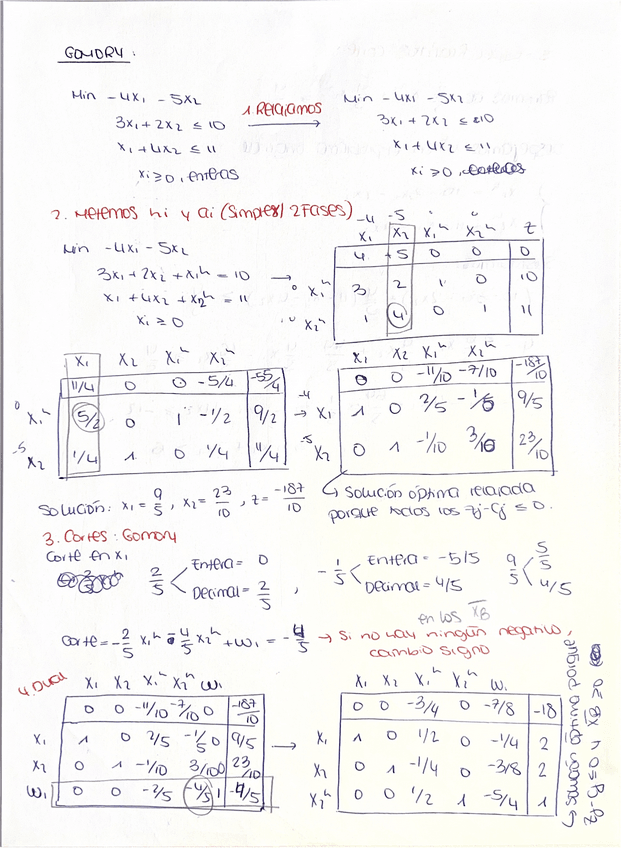 GOMORY:
Min -4x₁ - 5x₂
3x₁ + 2x₂ ≤ 10
x₁ + 4x₂ ≤ 11
xi ≥ 0, enteras
1. Relajamos
Min -4x₁ - 5x₂
3x₁ + 2x₂ ≤ 10
x₁ + 4x₂ ≤ 11
xi ≥ 0,
2. Metemos hi y ai (Simplex/2 Fases)
Min -4x₁ - 5x₂
3x₁ + 2x₂ + x₁ʰ = 10
x₁ + 4x₂ + x₂ʰ = 11
xi ≥ 0
-4 -5 0 0
x₁ x₂ x₁ʰ x₂ʰ z
4 +5 0 0 0
0 x₁ʰ 3 2 1 0 10
0 x₂ʰ 1 4 0 1 11
x₁ x₂ x₁ʰ x₂ʰ
11/4 0 0 -5/4 -55/4
0 x₁ʰ 5/2 0 1 -1/2 9/2
-5 x₂ 1/4 1 0 1/4 11/4
x₁ x₂ x₁ʰ x₂ʰ
0 0 -11/10 -7/10 -187/10
-4 x₁ 1 0 2/5 -1/5 9/5
-5 x₂ 0 1 -1/10 3/10 23/10
Solución: x₁ = 9/5, x₂ = 23/10, z = -187/10
↳ Solución óptima relajada
porque todos los zj-cj ≤ 0.
3. Cortes: Gomory
Corte en x₁
2/5 < Entera = 0
Decimal = 2/5 ,
-1/5 < Entera = -5/5
Decimal = 4/5
9/5 < 5/5
4/5
en los x̄B
Corte = -2/5 x₁ʰ - 4/5 x₂ʰ + w₁ = -4/5 → Si no hay ningún negativo,
cambio signo
4. Dual
x₁ x₂ x₁ʰ x₂ʰ w₁
0 0 -11/10 -7/10 0 -187/10
x₁ 1 0 2/5 -1/5 0 9/5
x₂ 0 1 -1/10 3/10 0 23/10
w₁ 0 0 -2/5 -4/5 1 -4/5
x₁ x₂ x₁ʰ x₂ʰ w₁
0 0 -3/4 0 -7/8 -18
x₁ 1 0 1/2 0 -1/4 2
x₂ 0 1 -1/4 0 -3/8 2
x₂ʰ 0 0 1/2 1 -5/4 1
↳ Somos óptima porque
zj-cj ≤ 0 y x̄B ≥ 0